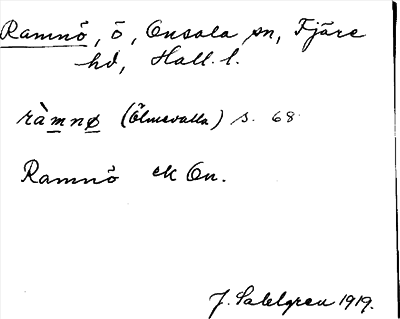 Ramnö, ö, Onsala sn, Fjäre
hd, Hall. l.
ràmnø (Ölmevalla) s. 68
Ramnö ek On.
J. Sahlgren 1919.